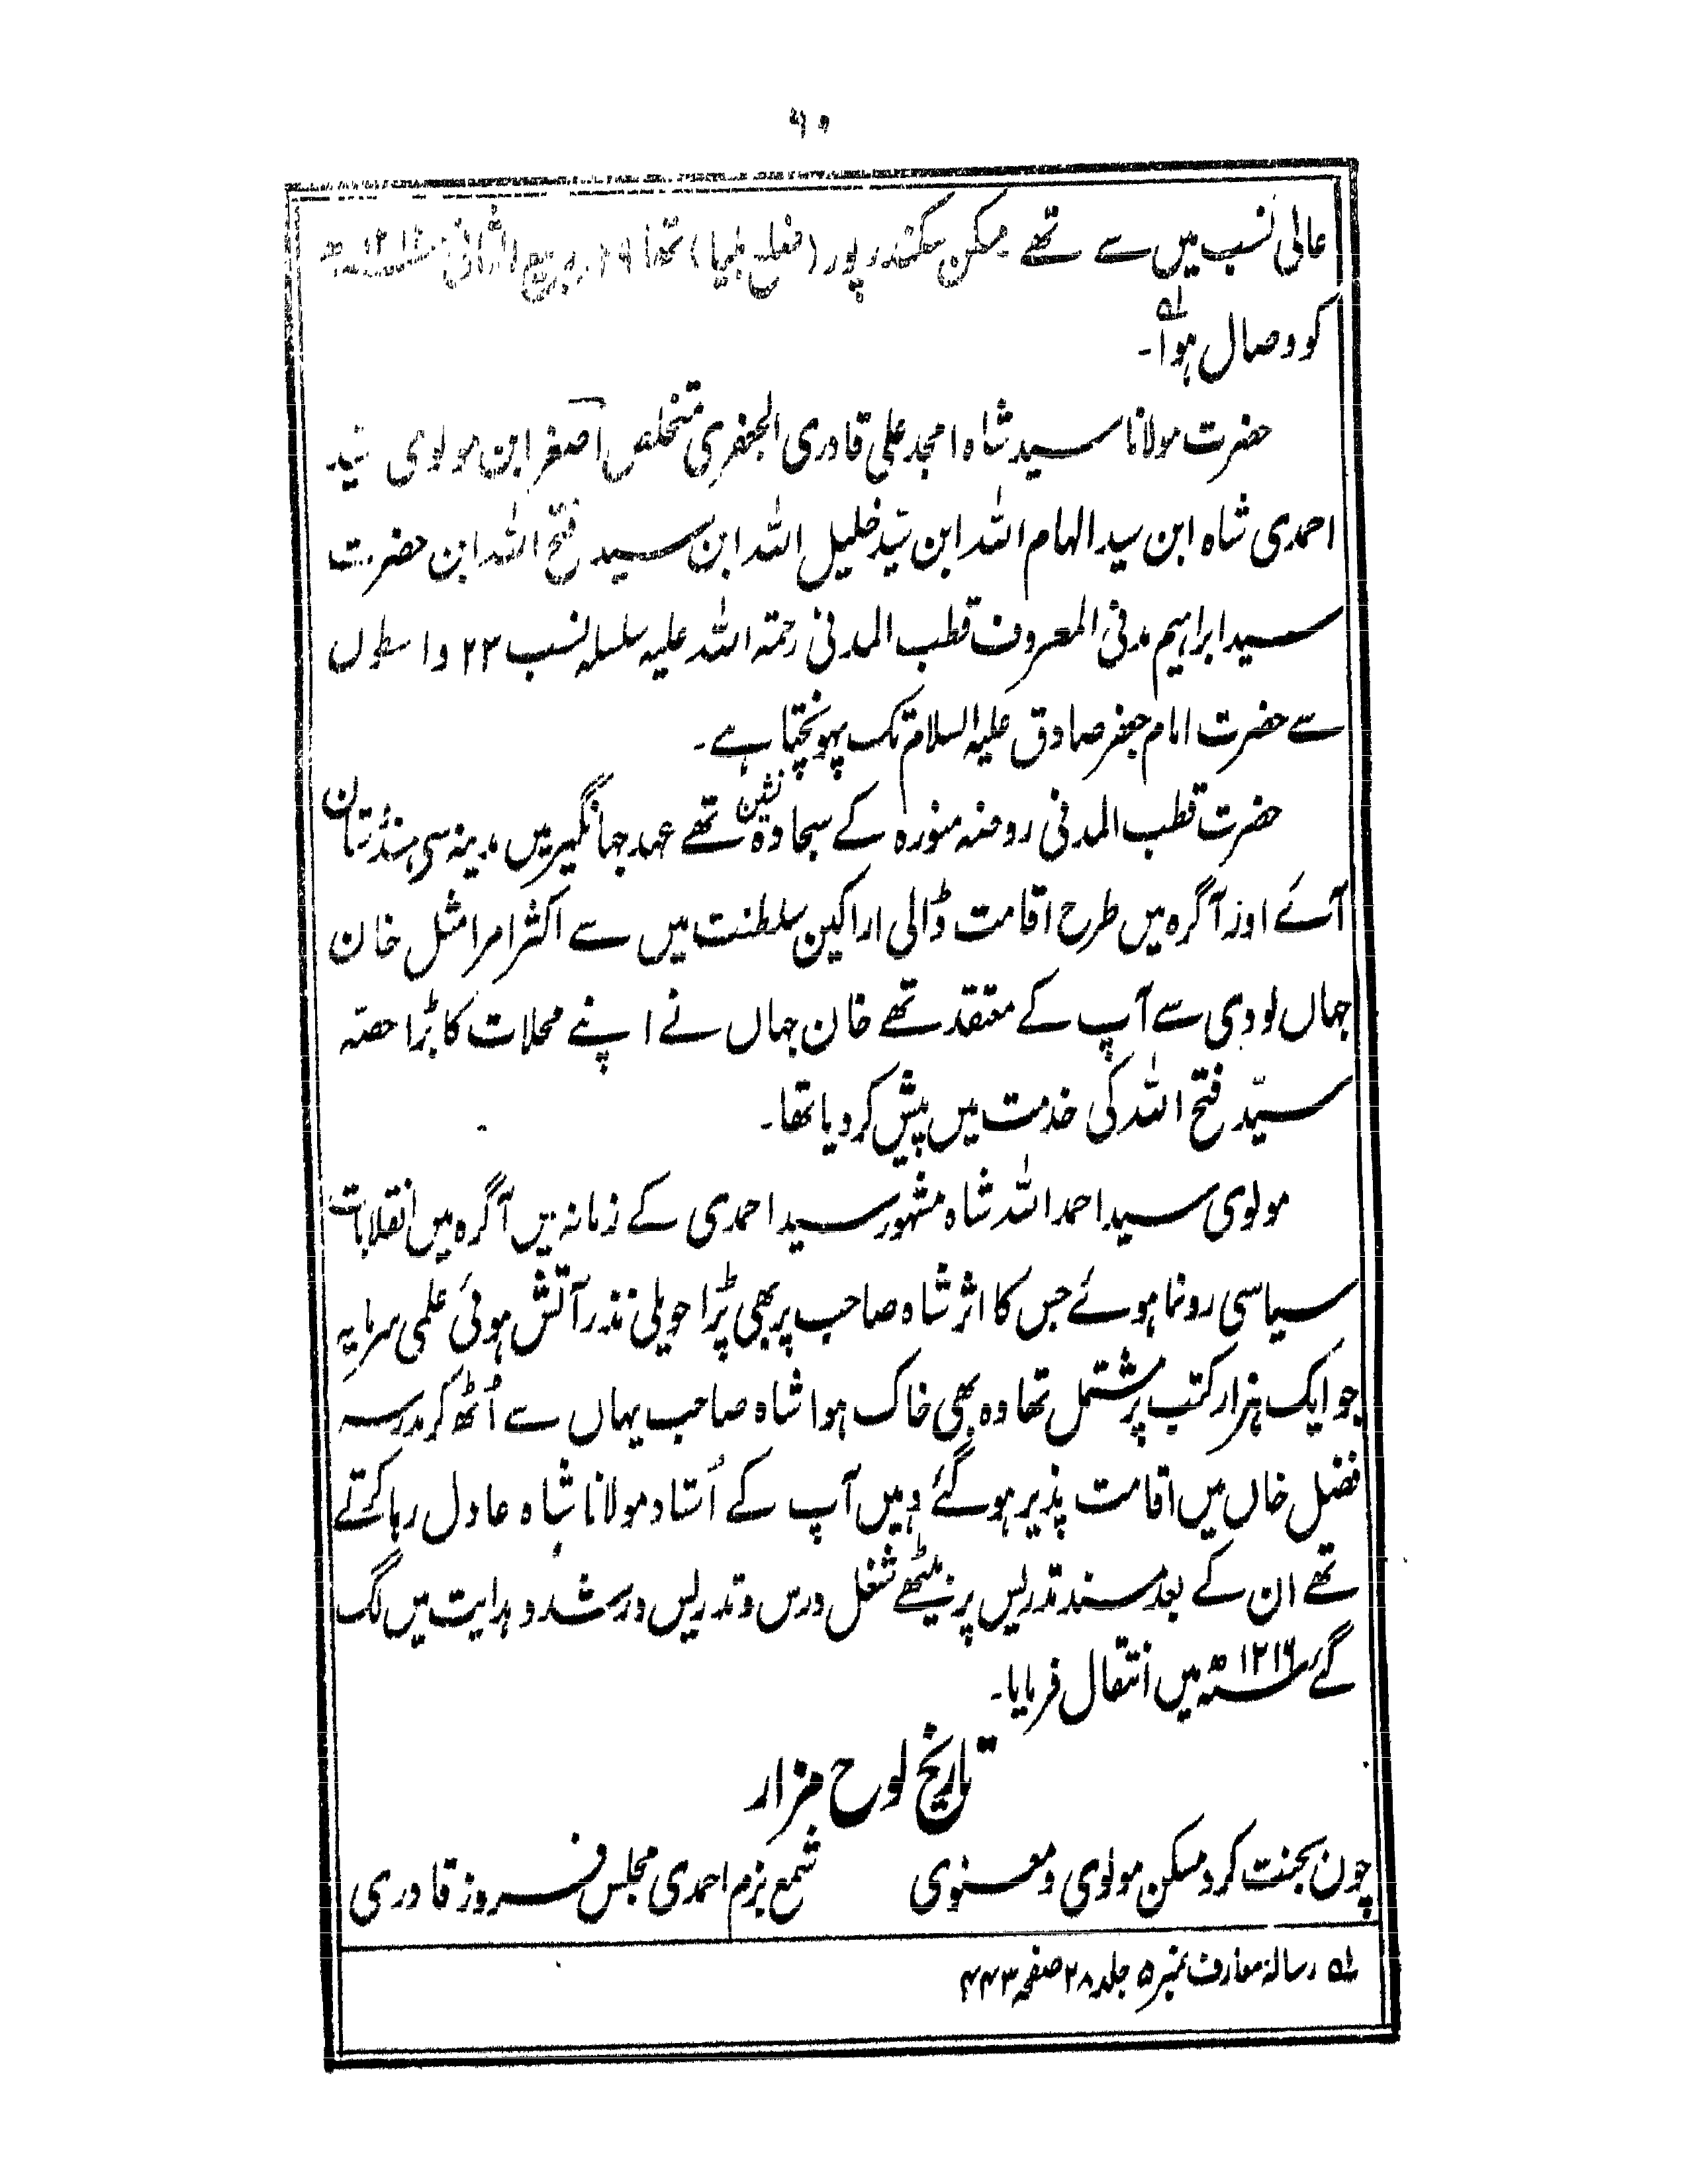 ۶۰
عالی نسب میں سے تھے مسکن سکندر پور (ضلع بلیا) تھا ۱۹ ربیع الثانی
کو وصال ہوا۔ ؎۱
حضرت مولانا سید شاہ امجد علی قادری الجعفری متخلص اصغر ابن مولوی سید
احمدی شاہ ابن سید الہام اللہ ابن سید خلیل اللہ ابن سید فتح اللہ ابن حضرت
سید ابراہیم مدنی المعروف قطب المدنی رحمتہ اللہ علیہ سلسلہ نسب ۲۲ واسطوں
سے حضرت امام جعفر صادق علیہ السلام تک پہونچتا ہے۔
حضرت قطب المدنی روضہ منورہ کے سجادہ نشین تھے عہد جہانگیر میں مدینہ سی ہندوستان
آئے اور آگرہ میں طرح اقامت ڈالی اراکین سلطنت میں سے اکثر امرا مثل خان
جہاں لودی سے آپ کے معتقد تھے خان جہاں نے اپنے محلات کا بڑا حصہ
سیّد فتح اللہ کی خدمت میں پیش کر دیا تھا۔
مولوی سید احمد اللہ شاہ مشہور سید احمدی کے زمانہ میں آگرہ میں انقلابات
سیاسی رونما ہوئے جس کا اثر شاہ صاحب پر بھی پڑا حویلی نذر آتش ہوئی علمی سرمایہ
جو ایک ہزار کتب پر مشتمل تھا وہ بھی خاک ہوا شاہ صاحب یہاں سے اُٹھ کر مدرسہ
فضل خاں میں اقامت پذیر ہو گئے وہیں آپ کے اُستاد مولانا شاہ عادل رہا کرتے
تھے ان کے بعد مسند تدریس پر بیٹھے شغل درس و تدریس و رشد و ہدایت میں لگ
گئے ۱۲۱۶ھ میں انتقال فرمایا۔
تاریخ لوح مزار
چون بجنت کرد مسکن مولوی و معنوی شمع بزم احمدی مجلس فروز قادری
؎۱ رسالہ معارف نمبر ۵ جلد ۲۸ صفحہ ۴۴۳